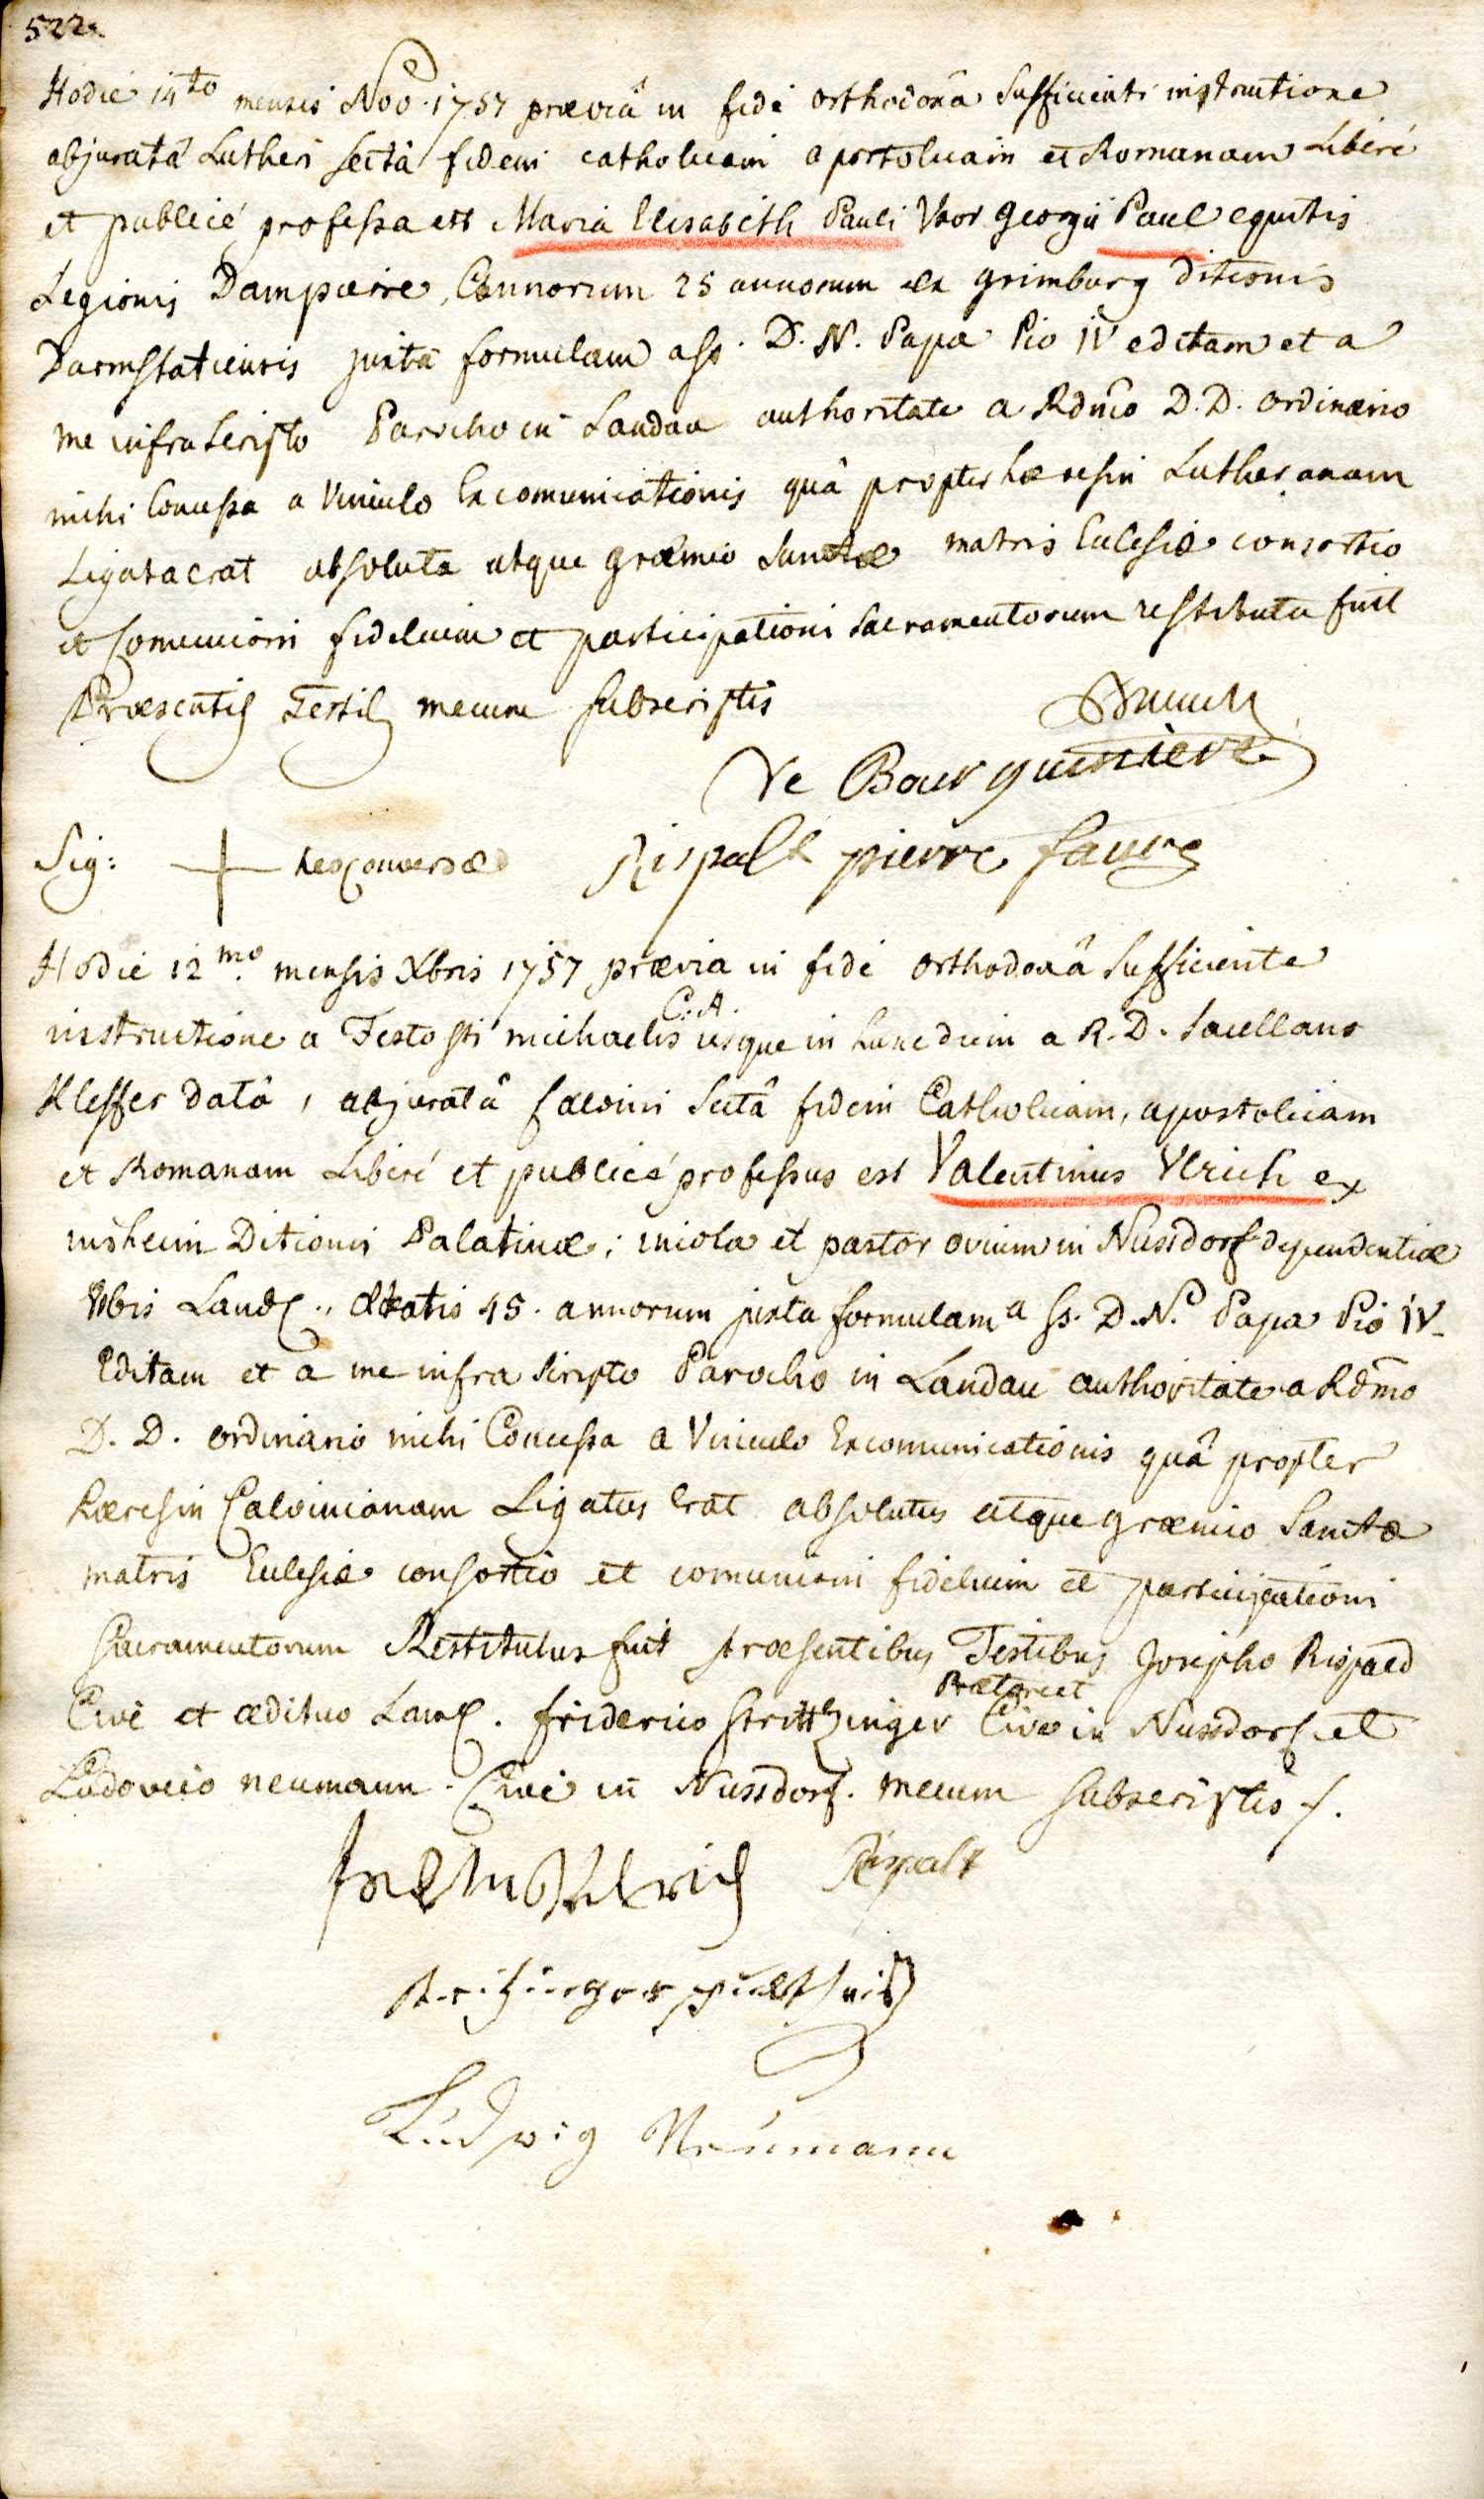 522.
Hodie 14to mensis Nov. 1757 præviâ in fide orthodoxâ sufficienti instructione
abjuratâ Lutheri sectâ fidem catholicam apostolicam et Romanam Liberé
et publicé professa est Maria Elisabeth Pauli Uxor Georgii Paul equitis
Legionis Dampierre, annorum 25 annorum ex Grimburg ditionis
Darmstatiensis juxta formulam a ss. D. N. Papa Pio IV editam et a
me infra scripto Parocho in Landau authoritate a Rdmo D.D. ordinario
mihi Concessa a Vinculo Excomunicationis quâ propter hæresin Lutheranam
Ligata erat absoluta atque græmio Sanctæ matris Ecclesiæ consortio
et Comunioni fidelium et participationi sacramentorum restituta fuit
Præsentib testib mecum subscriptis
De Bourguiniere
Sig: + neoConversæ Rispalt pierre faure
Hodie 12mo. mensis Xbris 1757 prævia in fide orthodoxâ Sufficiente
instructione a Festo sti michaelis C. A. usque in hunc diem a R. D. Sacellano
Kleffer datâ, abjuratâ Calvini Sectâ fidem Catholicam, apostolicam
et Romanam Liberé et publicé professus est Valentinus Ulrich ex
insheim Ditionis Palatinæ; incola et pastor ovium in Nussdorf dependentiæ
Urbis Land., Ætatis 45. annorum juxta formulam a ss. D. N. Papa Pio IV
Editam et a me infra scripto Parocho in Landau authoritate a Rdmo
D. D. ordinario mihi Concessa a Vinculo Excomunicationis quâ propter
hæresin Calvinianam Ligatus erat absolutus atque græmio Sanctæ
matris Ecclesiæ consortio et comunioni fidelium et participationi
Sacramentorum Restitutus fuit præsentibus Testibus Josepho Rispald
Cive et ædituo Land. friderico Strittzinger Prætore et Cive in Nussdorf et
Ludovico neumann Cive in Nussdorf. mecum subscriptis /.
Rispalt
Ludwig Neúmann